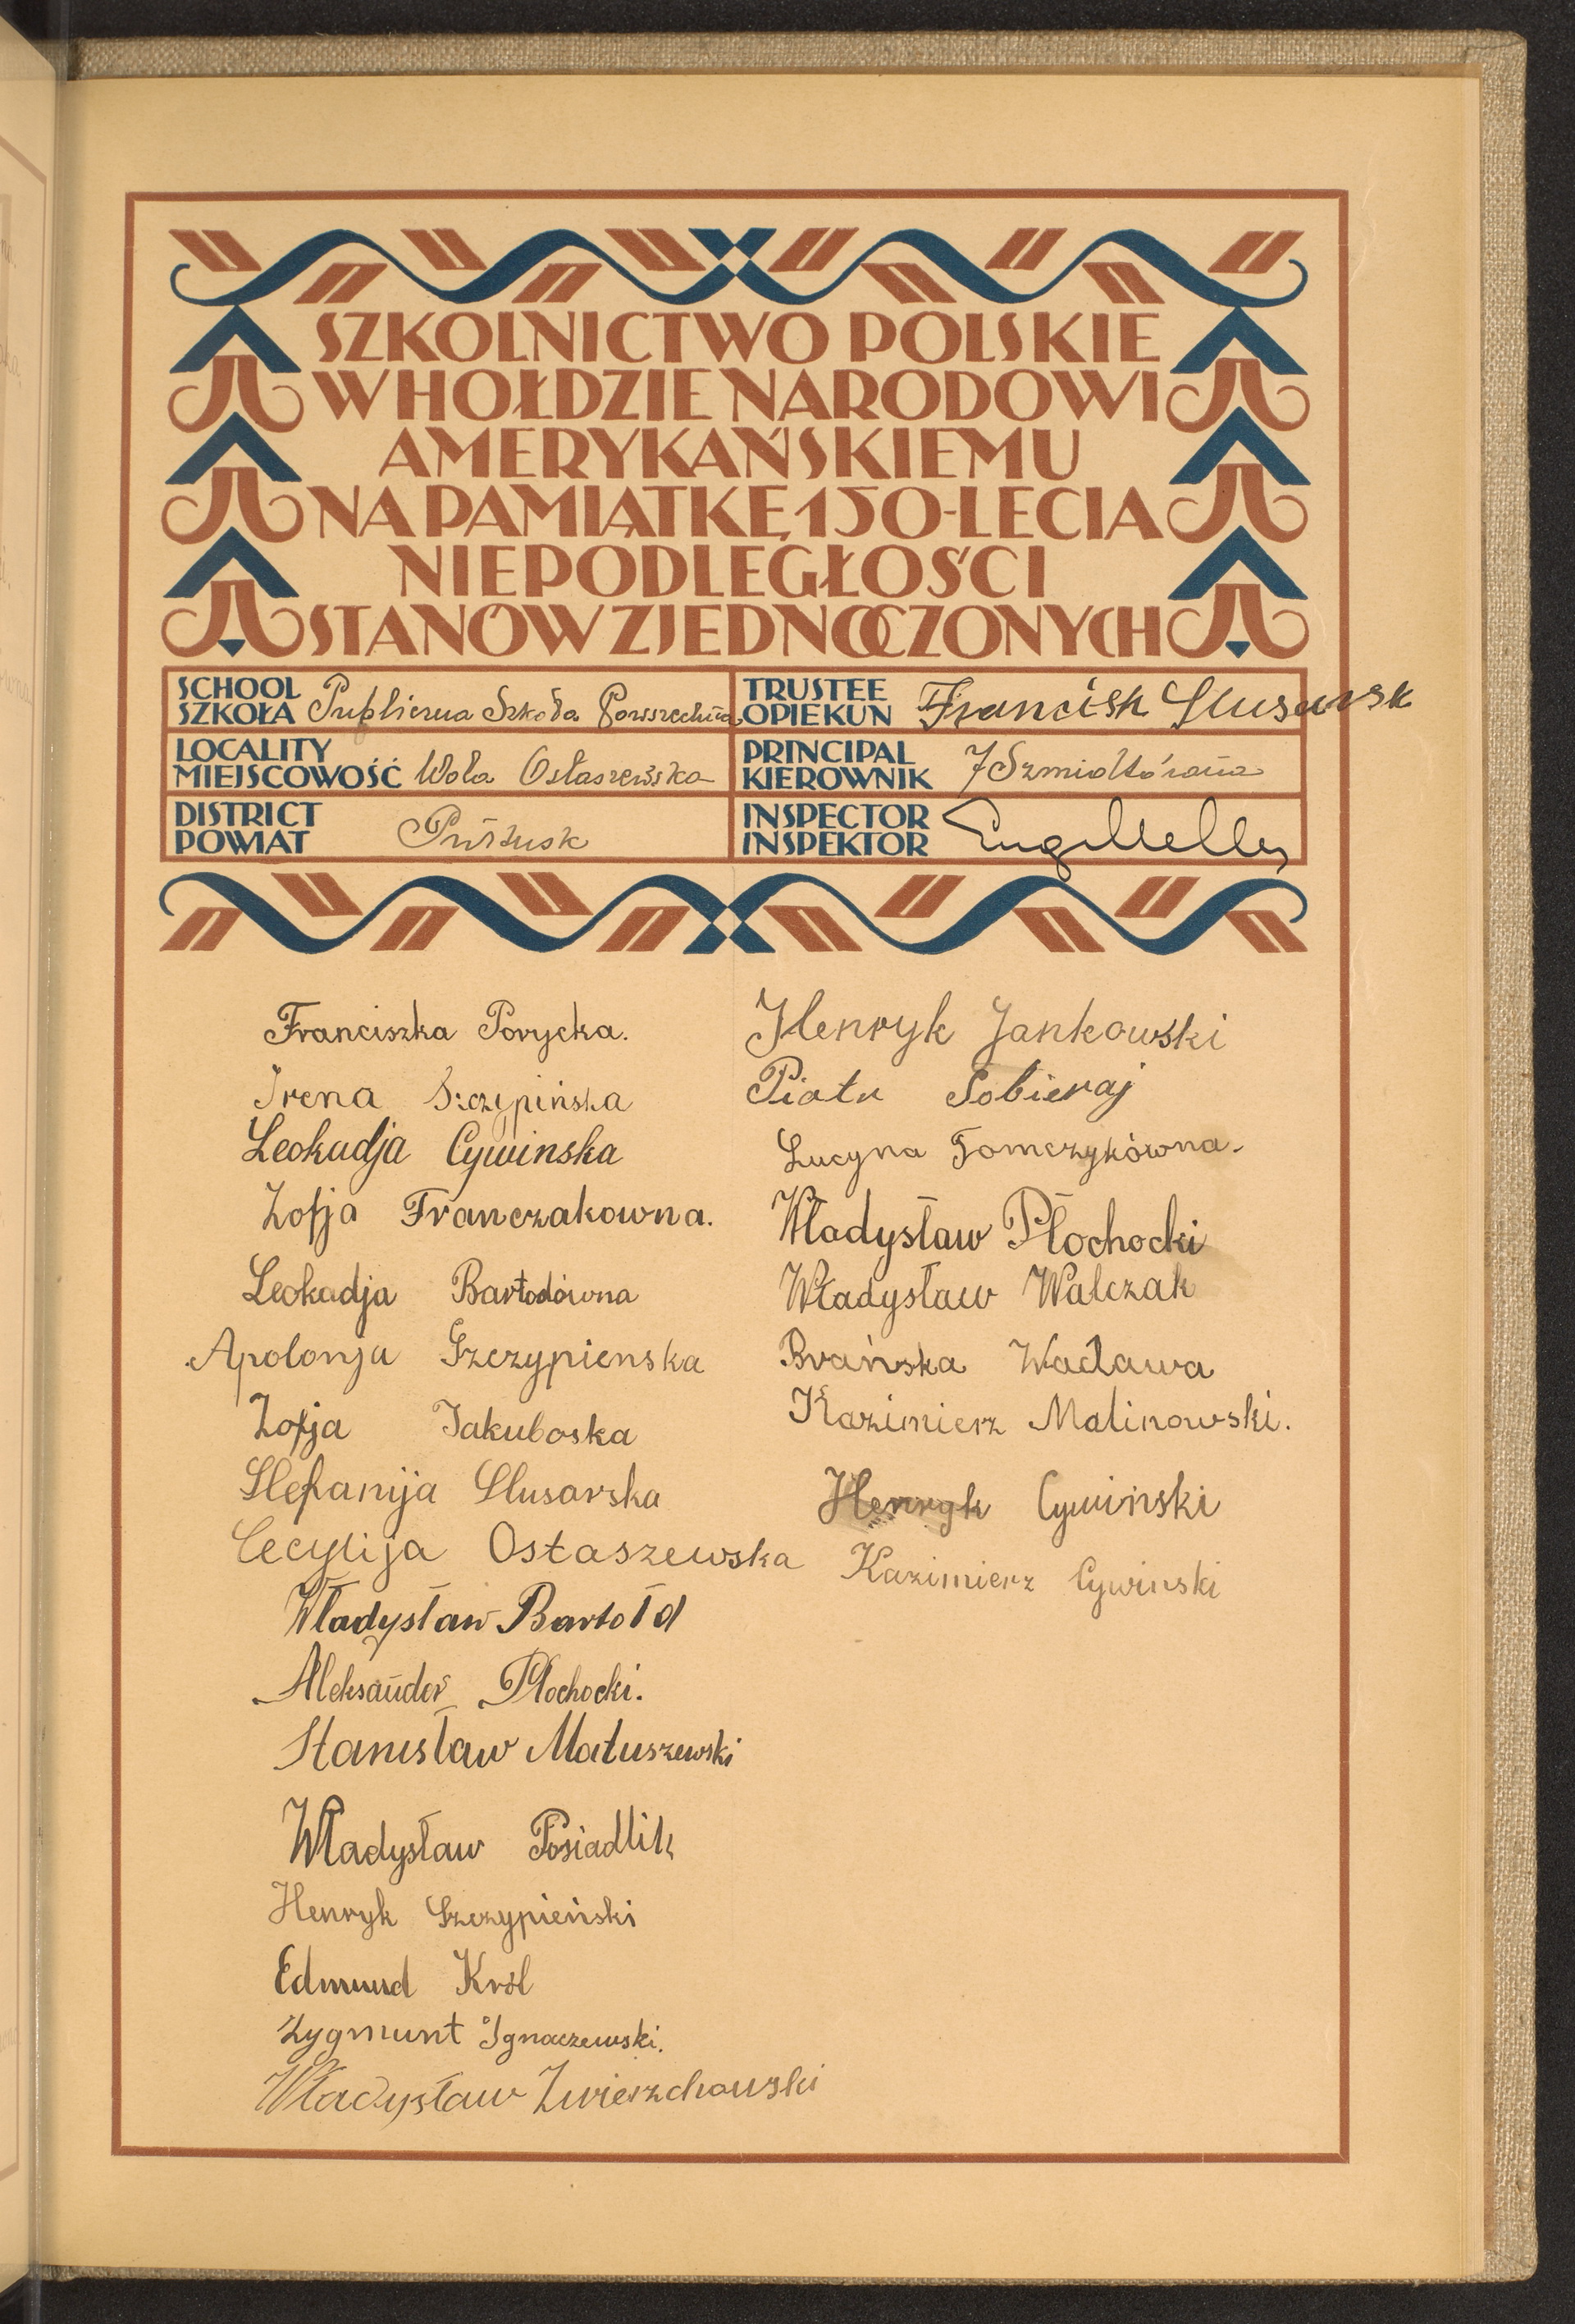 SZKOLNICTWO POLSKIE
W HOŁDZIE NARODOWI
AMERYKAŃSKIEMU
NA PAMIĄTKĘ 150-LECIA
NIEPODLEGŁOŚCI
STANÓW ZJEDNOCZONYCH
SCHOOL
SZKOŁA Publiczna Szkoła Powszechna
LOCALITY
MIEJSCOWOŚĆ Wola Ostaszewska
DISTRICT
POWIAT Pułtusk
TRUSTEE
OPIEKUN Francisk Slusarsk
PRINCIPAL
KIEROWNIK
INSPECTOR
INSPEKTOR
Franciszka Porycka.
Irena Szczypińska
Leokadja Cywinska
Zofja Franczakowna.
Leokadja Bartodówna
Apolonja Szczypienska
Zofja Jakuboska
Stefanija Slusarska
Cecylija Ostaszewska
Władysław Bartołd
Aleksander Płochocki.
Stanisław Matuszewski
Władysław Posiadlik
Henryk Szczypieński
Edmund Król
Zygmunt Ignaczewski.
Władysław Zwierzchowski
Henryk Jankowski
Piotr Sobieraj
Lucyna Tomczykówna.
Władysław Płochocki
Władysław Walczak
Brańska Wacława
Kazimierz Malinowski.
Henryk Cywiński
Kazimierz Cywinski